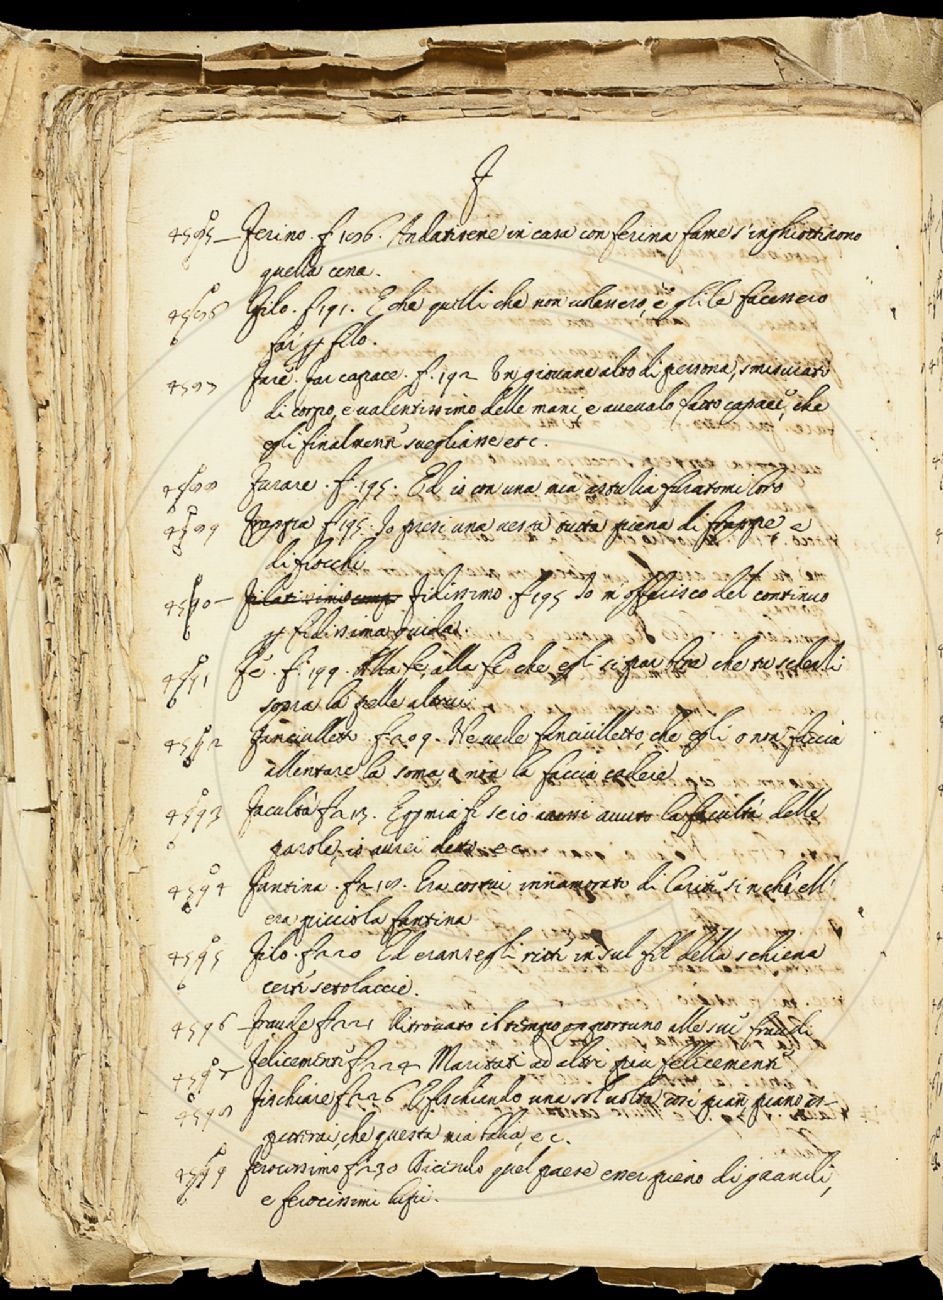 F
4585 — Ferino. f. 186. Andatisene in casa con ferina fame s'inghiottirono
quella cena.
4586 Filo. f. 191. E che quelli che non volessero, e' gli le facessero
far p filo.
4587 Fare. Far capace. f. 192 Un giovane alto di persona, smisurati
di corpo, e valentissimo delle mani, e avevalo fatto capace, che
egli finalmente svegliasse etc.
4588 Furare. f. 195. Ed io con una mia astuzia furatomi loro
4589 Frappa f. 195. Io presi una vesta tutta piena di frappe e
di fiocchi
4590 — Fidissimo. f. 195 Io m'offerisco del continuo
p fidissima guida.
4591 Fé. f. 199. Alla fe, alla fe che egli si par bene che tu scherzi
sopra la pelle altrui.
4592 Fanciulletto f. 209. Ne vede fanciulletto, che egli o non faccia
allentare la soma o non la faccia cadere
4593 Facultà f. 213. E p mia fe se io avessi avuto la facultà delle
parole, io avrei detto ec.
4594 Fantina. f. 218. Era costui innamorato di Carite sin ch'ell'
era picciola fantina
4595 Filo. f. 220 Ed eransegli ritti in sul fil della schiena
certe setolaccie.
4596 Fraude f. 221 Ritrovato il tempo opportuno alle sue fraudi
4597 Felicemente f. 224 Maritati ad altri piu felicemente
4598 Fischiare f. 226 E fischiando una sol volta così pian piano as-
petterai che questa mia talia, ec.
4599 Ferocissimo f. 230 Dicendo quel paese esser pieno di grandi,
e ferocissimi lupi.